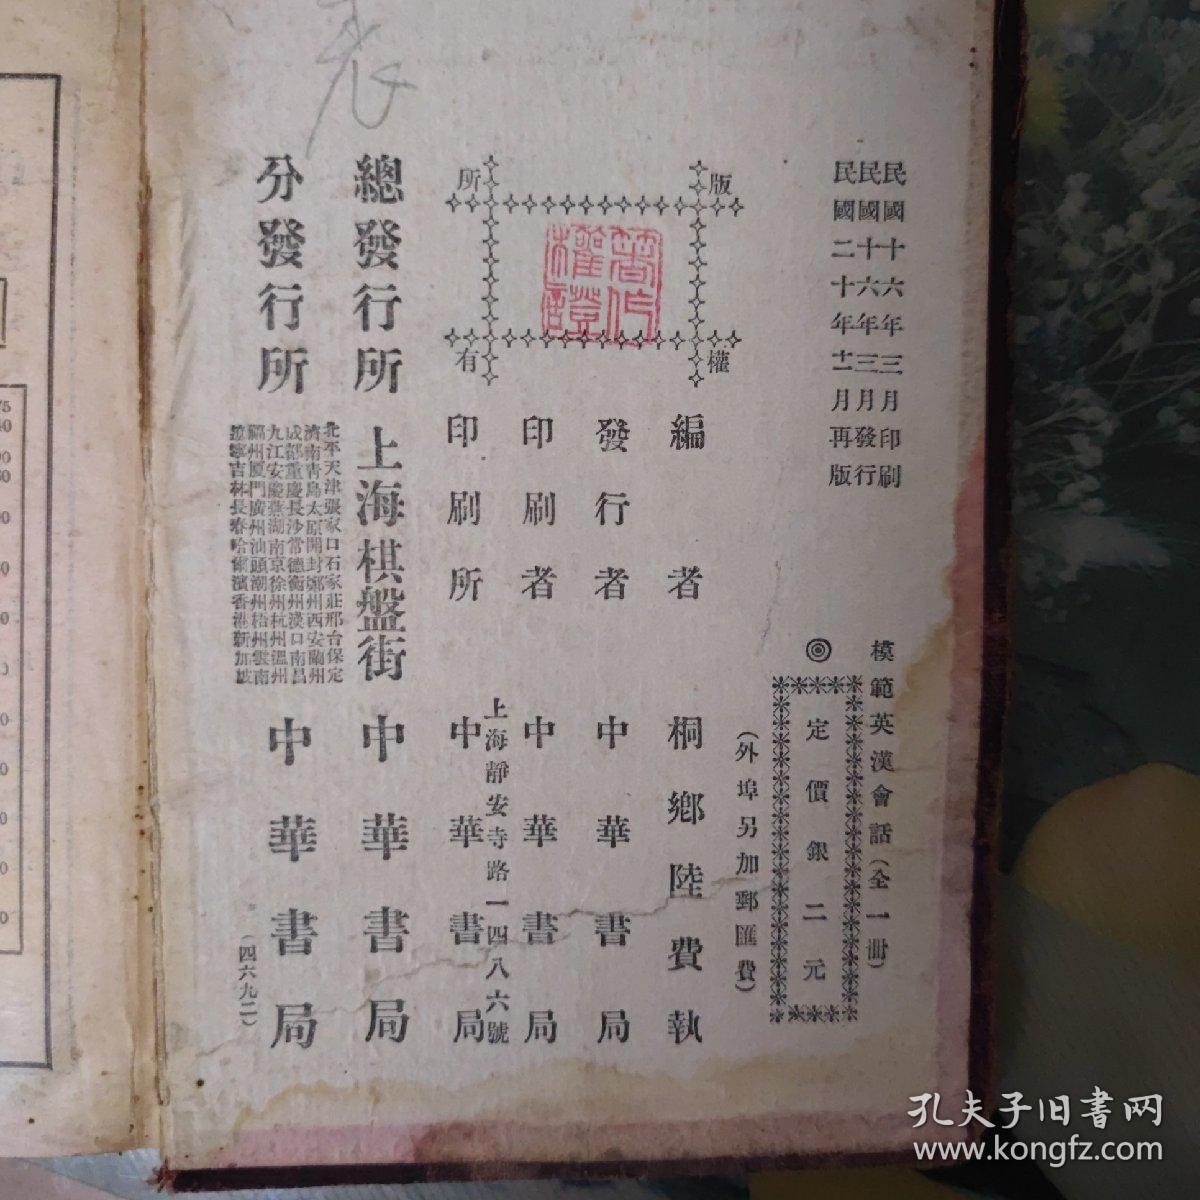 民國十六年三月印刷
民國十六年三月發行
民國二十年十二月再版
模範英漢會話(全一冊)
定價銀二元
(外埠另加郵匯費)
版權所有
編者 桐鄉陸費執
發行者 中華書局
印刷者 中華書局
印刷所 中華書局
上海靜安寺路一四八六號
總發行所 上海棋盤街 中華書局
分發行所 中華書局
北平天津張家口石家莊邢台保定
濟南青島太原開封鄭州西安蘭州
成都重慶長沙常德衡州漢口南昌
九江安慶蕪湖南京徐州杭州溫州
福州厦門廣州汕頭潮州梧州雲南
遼寧吉林長春哈爾濱香港新加坡
(四六九二)
孔夫子旧书网
www.kongfz.com